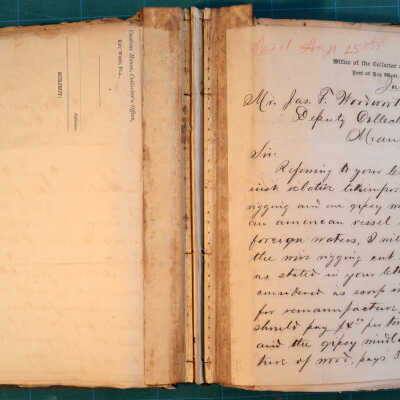 Custom House, Collector's Office,
Key West, Fla.,
SUBJECT:
Rec'd
Office of the Collector
Port of Key West
Mr. Jas. F. Woodwor
Deputy Collec
Miam
Sir:
Referring to your le
inst relative to
rigging and one gipsy
an american vessel
foreign waters, I
the wire rigging cut
as stated in your let
considered as scrap
for remanufacture,
should pay $4.00 per ton
and the gipsy windl
ture of wood, pays 3